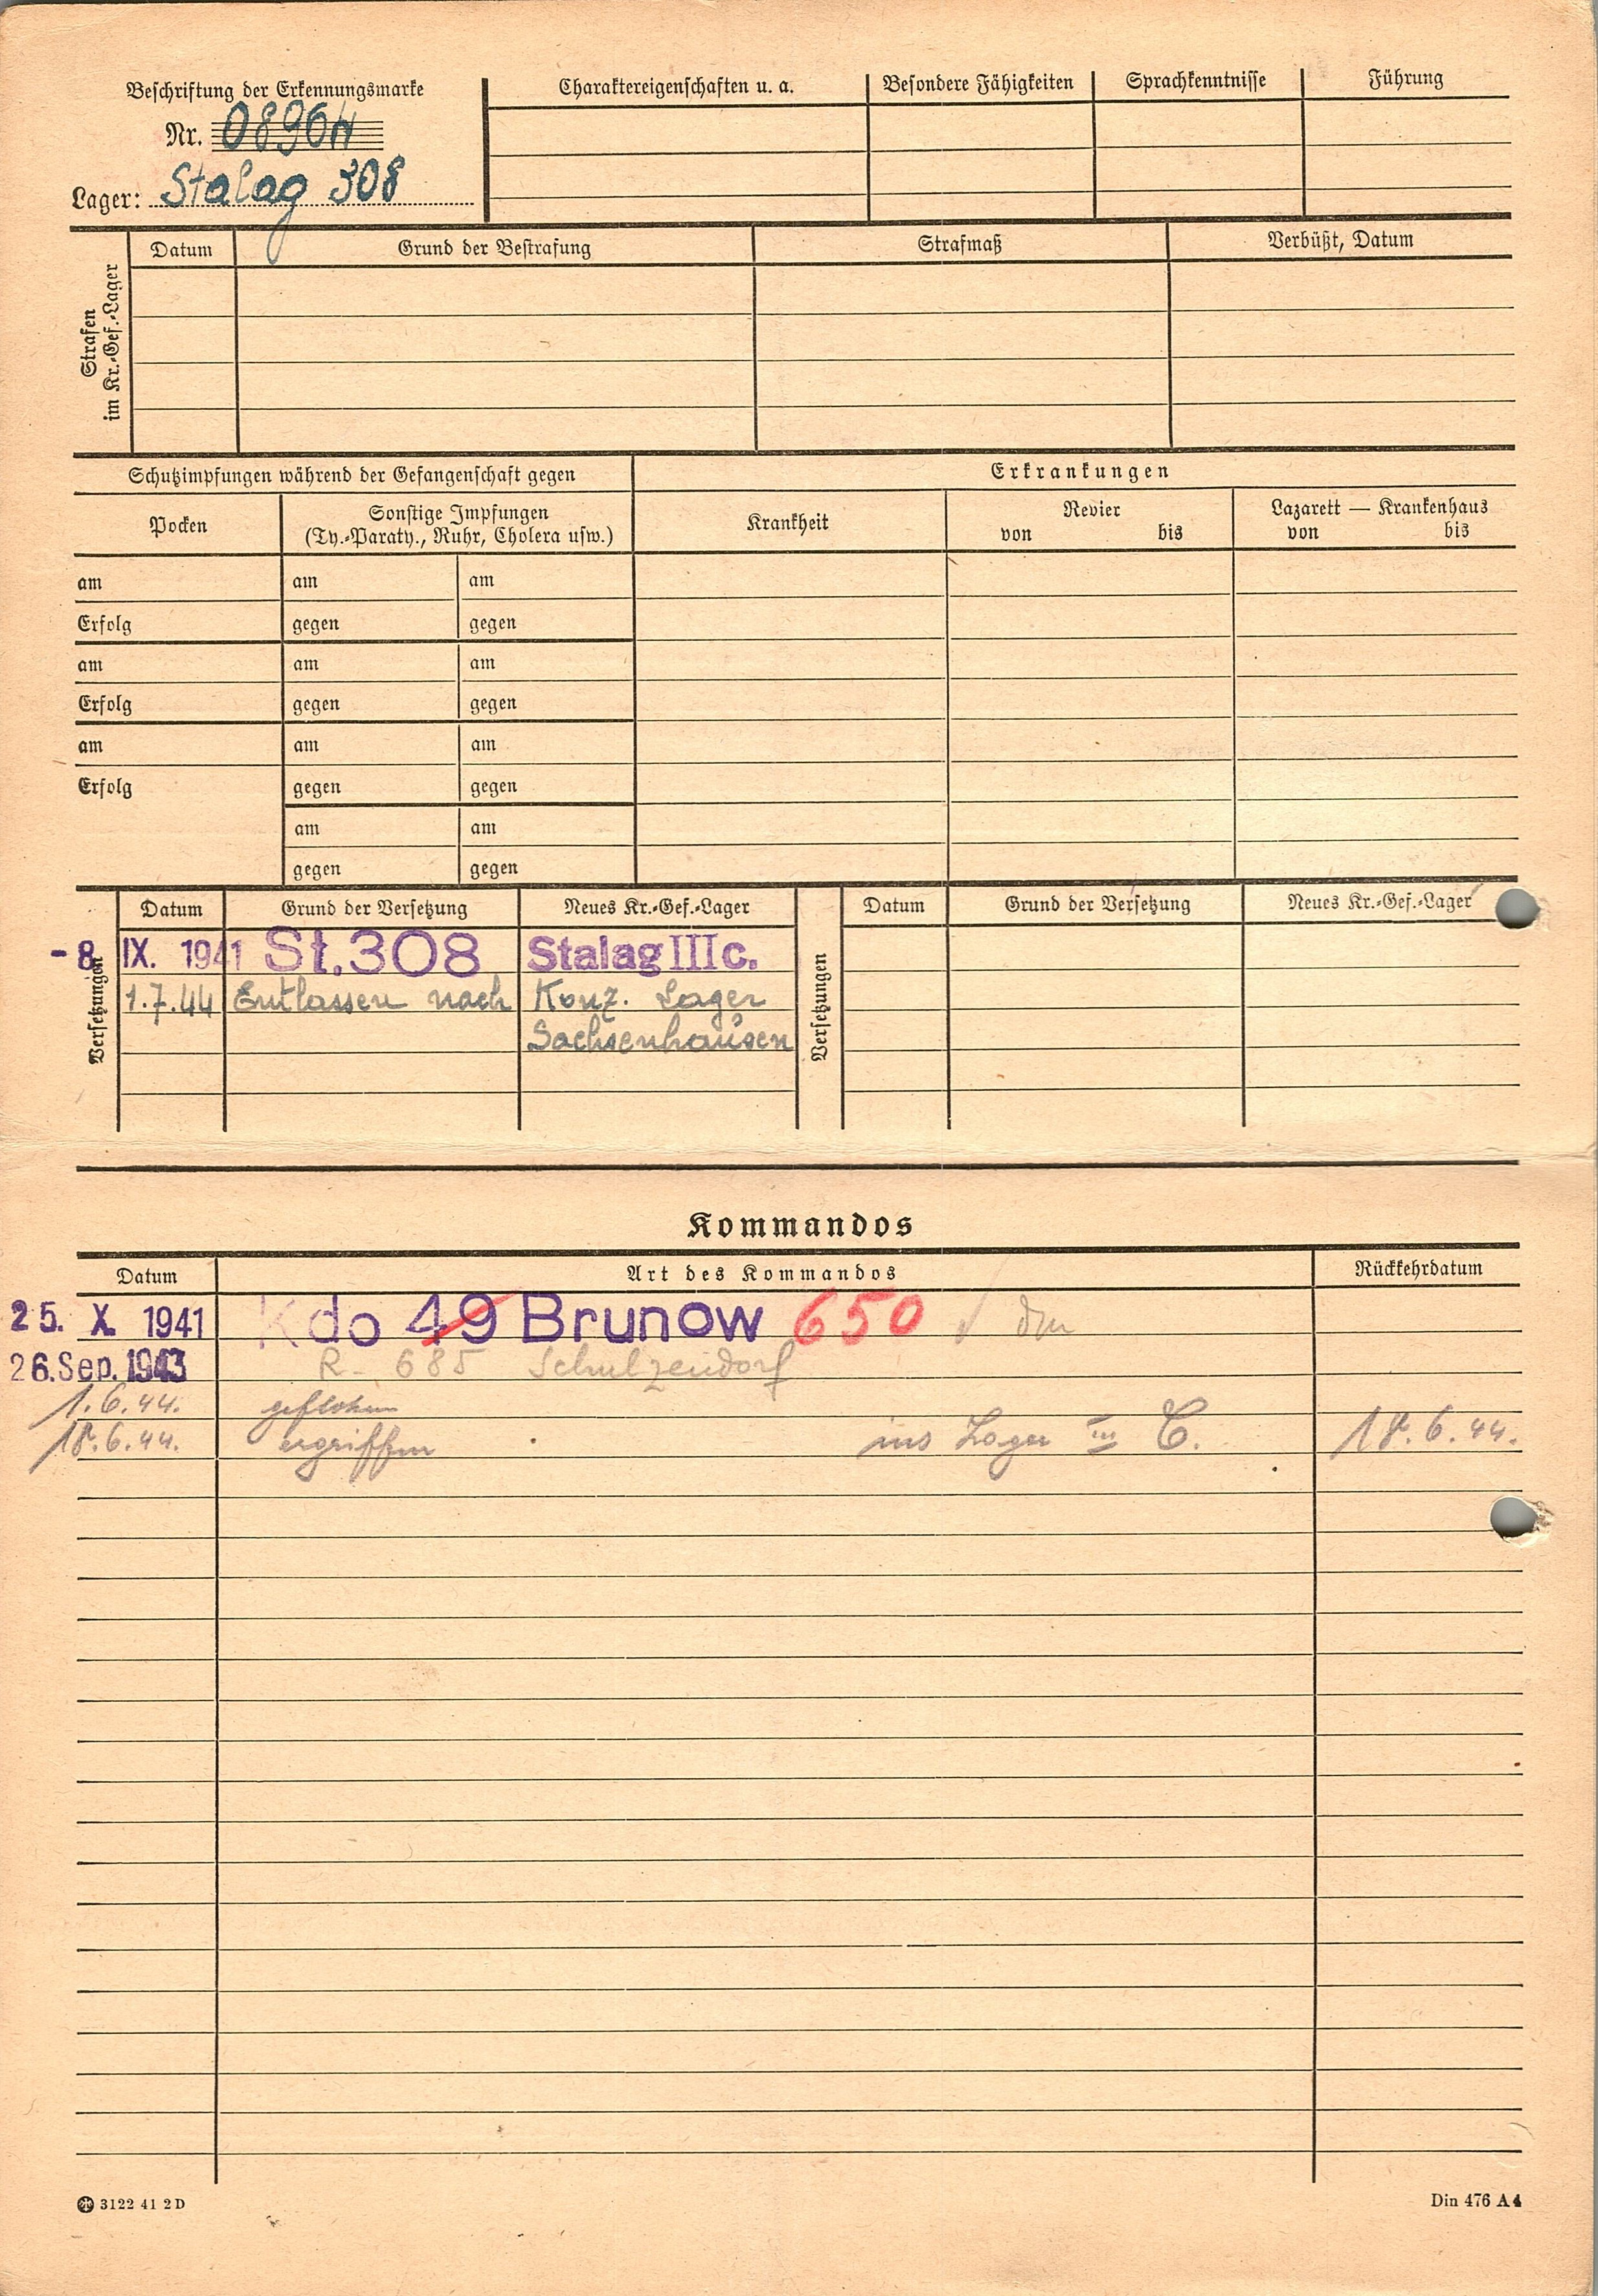 Beschriftung der Erkennungsmarke
Nr. 08964
Lager: Stalag 308
Charaktereigenschaften u. a. Besondere Fähigkeiten Sprachkenntnisse Führung
Strafen
im Kr.-Gef.-Lager
Datum Grund der Bestrafung Strafmaß Verbüßt, Datum
Schutzimpfungen während der Gefangenschaft gegen
Erkrankungen
Pocken
Sonstige Impfungen
(Ty.-Paraty., Ruhr, Cholera usw.)
Krankheit
Revier
von bis
Lazarett — Krankenhaus
von bis
am am am
Erfolg gegen gegen
am am am
Erfolg gegen gegen
am am am
Erfolg gegen gegen
am am
gegen gegen
Versetzungen
Datum Grund der Versetzung Neues Kr.-Gef.-Lager
-8. IX. 1941 St. 308 Stalag III c.
1.7.44 Entlassen nach Konz. Lager
Sachsenhausen
Versetzungen
Datum Grund der Versetzung Neues Kr.-Gef.-Lager
Kommandos
Datum Art des Kommandos Rückkehrdatum
25. X. 1941 Kdo 49 Brunow 650
26. Sep. 1943 R. 685 Schulzendorf
1.6.44. geflohen
18.6.44. ergriffen ins Lager III C. 18.6.44.
3122 41 2 D
Din 476 A 4